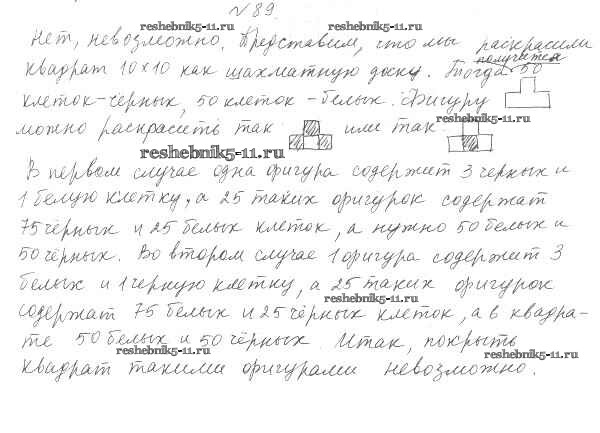 № 89.
reshebnik5-11.ru reshebnik5-11.ru
Нет, невозможно. Представим, что мы раскрасили
квадрат 10×10 как шахматную доску. Тогда получится 50
клеток-чёрных, 50 клеток - белых. Фигуру
можно раскрасить так или так
reshebnik5-11.ru
В первом случае одна фигура содержит 3 черных и
1 белую клетку, а 25 таких фигурок содержат
75 чёрных и 25 белых клеток, а нужно 50 белых и
50 чёрных. Во втором случае 1 фигура содержит 3
белых и 1 черную клетку, а 25 таких фигурок
reshebnik5-11.ru
содержат 75 белых и 25 чёрных клеток, а в квадра-
те 50 белых и 50 чёрных. Итак, покрыть
reshebnik5-11.ru reshebnik5-11.ru
квадрат такими фигурами невозможно.